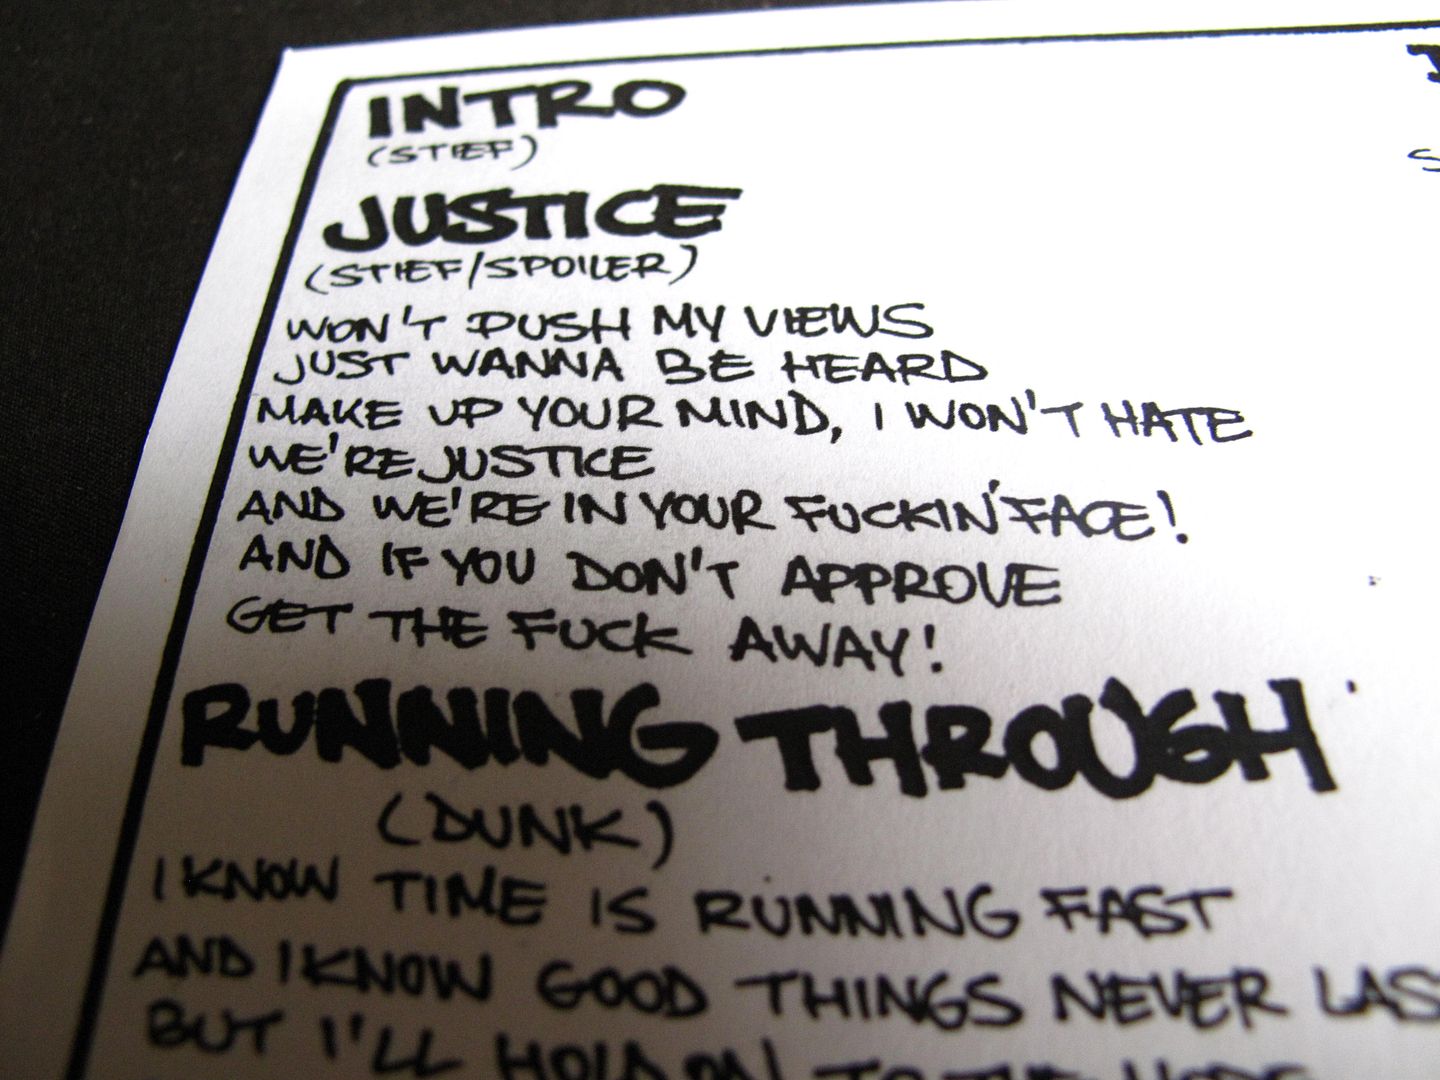 INTRO
(STIEF)
JUSTICE
(STIEF/SPOILER)
WON'T PUSH MY VIEWS
JUST WANNA BE HEARD
MAKE UP YOUR MIND, I WON'T HATE
WE'RE JUSTICE
AND WE'RE IN YOUR FUCKIN' FACE!
AND IF YOU DON'T APPROVE
GET THE FUCK AWAY!
RUNNING THROUGH
(DUNK)
I KNOW TIME IS RUNNING FAST
AND I KNOW GOOD THINGS NEVER LAS
BUT I'LL HOLD ON TO THE HOPE